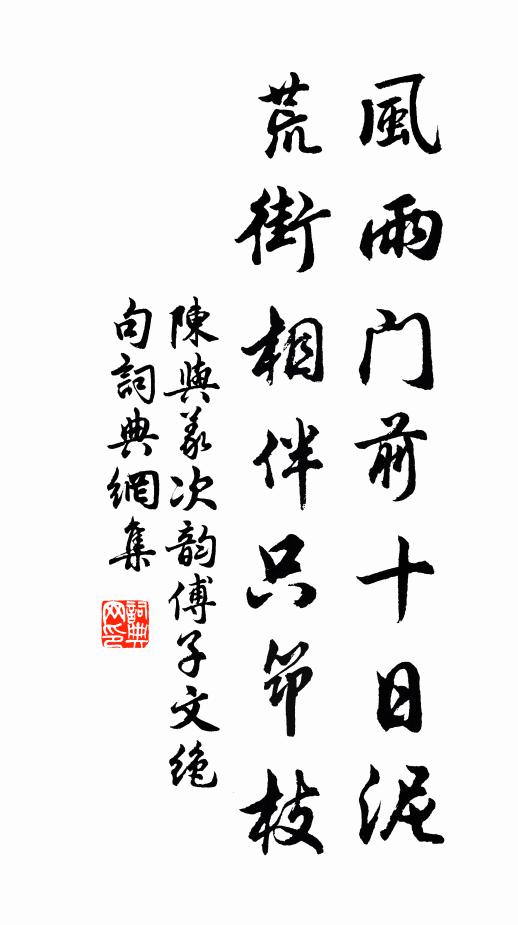 風雨门前十日泥
荒街相伴只筇枝
陳與義次韵傅子文绝
句詞典網集
詞典
网印